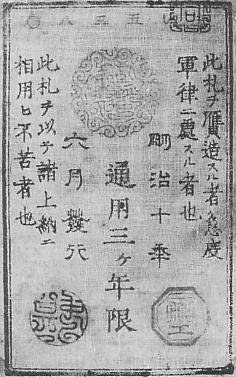 此札ヲ贋造スル者ハ急度
軍律ニ處スル者也
明治十年
六月發行
通用三ヶ年限
此札ヲ以テ諸上納ニ
相用ヒ不苦者也